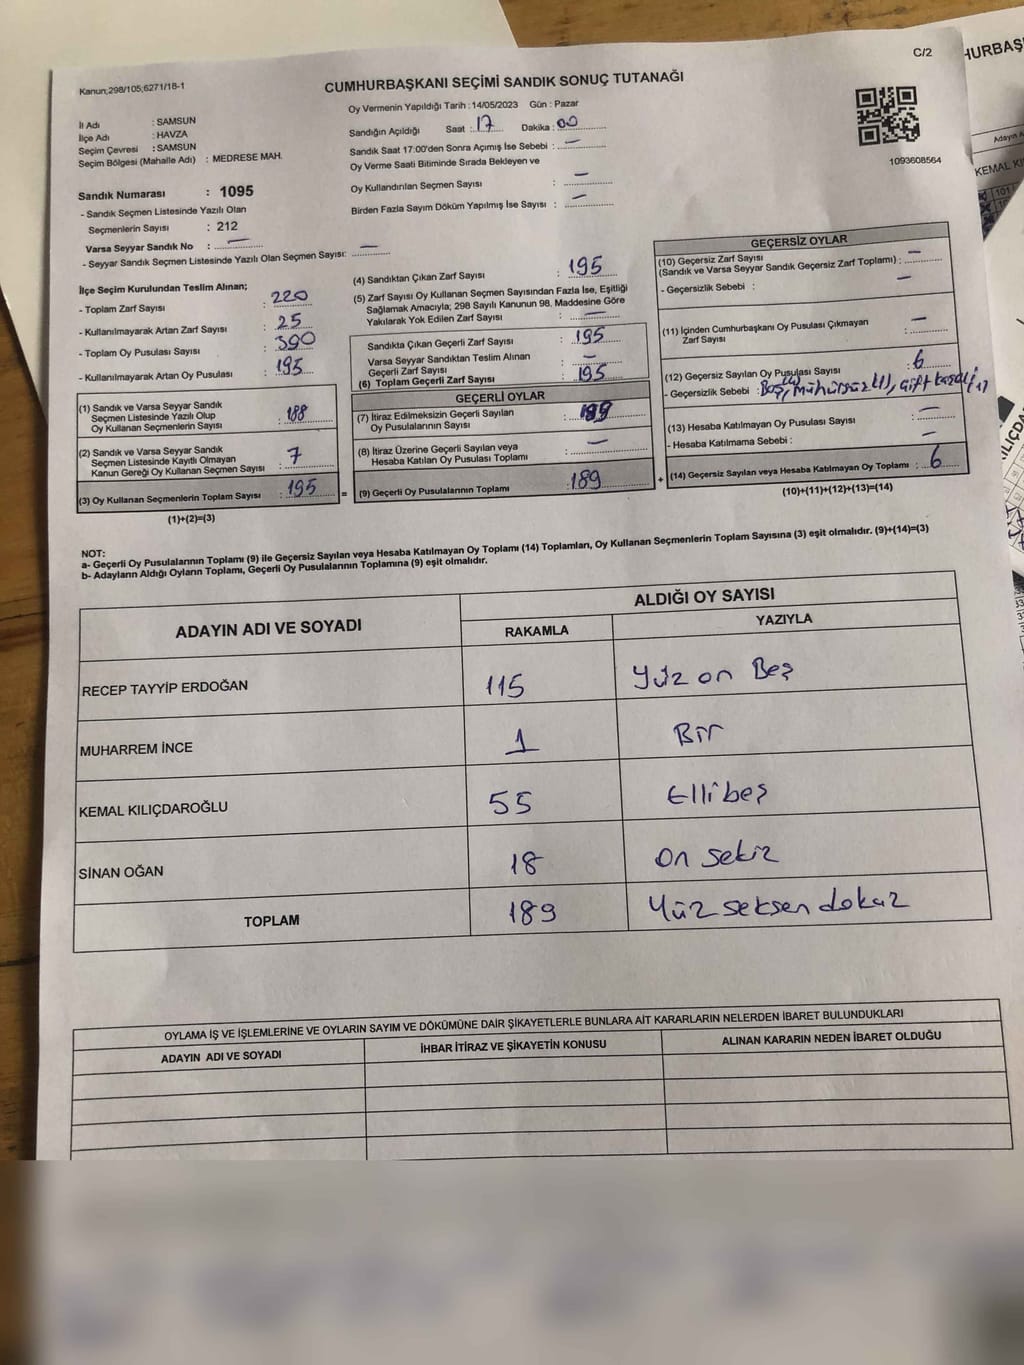 C/2
HURBAŞ
Kanun;298/105;6271/18-1
CUMHURBAŞKANI SEÇİMİ SANDIK SONUÇ TUTANAĞI
İl Adı : SAMSUN
İlçe Adı : HAVZA
Seçim Çevresi : SAMSUN
Seçim Bölgesi (Mahalle Adı) : MEDRESE MAH.
Oy Vermenin Yapıldığı Tarih : 14/05/2023 Gün : Pazar
Sandığın Açıldığı Saat : 17 Dakika : 00
Sandık Saat 17:00'den Sonra Açımış İse Sebebi : —
Oy Verme Saati Bitiminde Sırada Bekleyen ve
Oy Kullandırılan Seçmen Sayısı : —
Birden Fazla Sayım Döküm Yapılmış İse Sayısı : —
1093608564
Adayın A
KEMAL KI
Sandık Numarası : 1095
- Sandık Seçmen Listesinde Yazılı Olan
Seçmenlerin Sayısı : 212
Varsa Seyyar Sandık No : —
- Seyyar Sandık Seçmen Listesinde Yazılı Olan Seçmen Sayısı: —
İlçe Seçim Kurulundan Teslim Alınan;
- Toplam Zarf Sayısı : 220
- Kullanılmayarak Artan Zarf Sayısı : 25
- Toplam Oy Pusulası Sayısı : 390
- Kullanılmayarak Artan Oy Pusulası : 195
(1) Sandık ve Varsa Seyyar Sandık
Seçmen Listesinde Yazılı Olup
Oy Kullanan Seçmenlerin Sayısı : 188
(2) Sandık ve Varsa Seyyar Sandık
Seçmen Listesinde Kayıtlı Olmayan
Kanun Gereği Oy Kullanan Seçmen Sayısı : 7
(3) Oy Kullanan Seçmenlerin Toplam Sayısı : 195 =
(1)+(2)=(3)
(4) Sandıktan Çıkan Zarf Sayısı : 195
(5) Zarf Sayısı Oy Kullanan Seçmen Sayısından Fazla İse, Eşitliği
Sağlamak Amacıyla; 298 Sayılı Kanunun 98. Maddesine Göre
Yakılarak Yok Edilen Zarf Sayısı : —
Sandıkta Çıkan Geçerli Zarf Sayısı : 195
Varsa Seyyar Sandıktan Teslim Alınan
Geçerli Zarf Sayısı : —
(6) Toplam Geçerli Zarf Sayısı : 195
GEÇERLİ OYLAR
(7) İtiraz Edilmeksizin Geçerli Sayılan
Oy Pusulalarının Sayısı : 189
(8) İtiraz Üzerine Geçerli Sayılan veya
Hesaba Katılan Oy Pusulası Toplamı : —
(9) Geçerli Oy Pusulalarının Toplamı : 189 +
GEÇERSİZ OYLAR
(10) Geçersiz Zarf Sayısı
(Sandık ve Varsa Seyyar Sandık Geçersiz Zarf Toplamı) : —
- Geçersizlik Sebebi : —
(11) İçinden Cumhurbaşkanı Oy Pusulası Çıkmayan
Zarf Sayısı : —
(12) Geçersiz Sayılan Oy Pusulası Sayısı : 6
- Geçersizlik Sebebi : Boş, mühürsüz (1), çift
(13) Hesaba Katılmayan Oy Pusulası Sayısı : —
- Hesaba Katılmama Sebebi : —
(14) Geçersiz Sayılan veya Hesaba Katılmayan Oy Toplamı : 6
(10)+(11)+(12)+(13)=(14)
NOT:
a- Geçerli Oy Pusulalarının Toplamı (9) ile Geçersiz Sayılan veya Hesaba Katılmayan Oy Toplamı (14) Toplamları, Oy Kullanan Seçmenlerin Toplam Sayısına (3) eşit olmalıdır. (9)+(14)=(3)
b- Adayların Aldığı Oyların Toplamı, Geçerli Oy Pusulalarının Toplamına (9) eşit olmalıdır.
ADAYIN ADI VE SOYADI
ALDIĞI OY SAYISI
RAKAMLA YAZIYLA
RECEP TAYYİP ERDOĞAN 115 Yüz on Beş
MUHARREM İNCE 1 Bir
KEMAL KILIÇDAROĞLU 55 Ellibeş
SİNAN OĞAN 18 on sekiz
TOPLAM 189 Yüz seksen dokuz
OYLAMA İŞ VE İŞLEMLERİNE VE OYLARIN SAYIM VE DÖKÜMÜNE DAİR ŞİKAYETLERLE BUNLARA AİT KARARLARIN NELERDEN İBARET BULUNDUKLARI
ADAYIN ADI VE SOYADI İHBAR İTİRAZ VE ŞİKAYETİN KONUSU ALINAN KARARIN NEDEN İBARET OLDUĞU